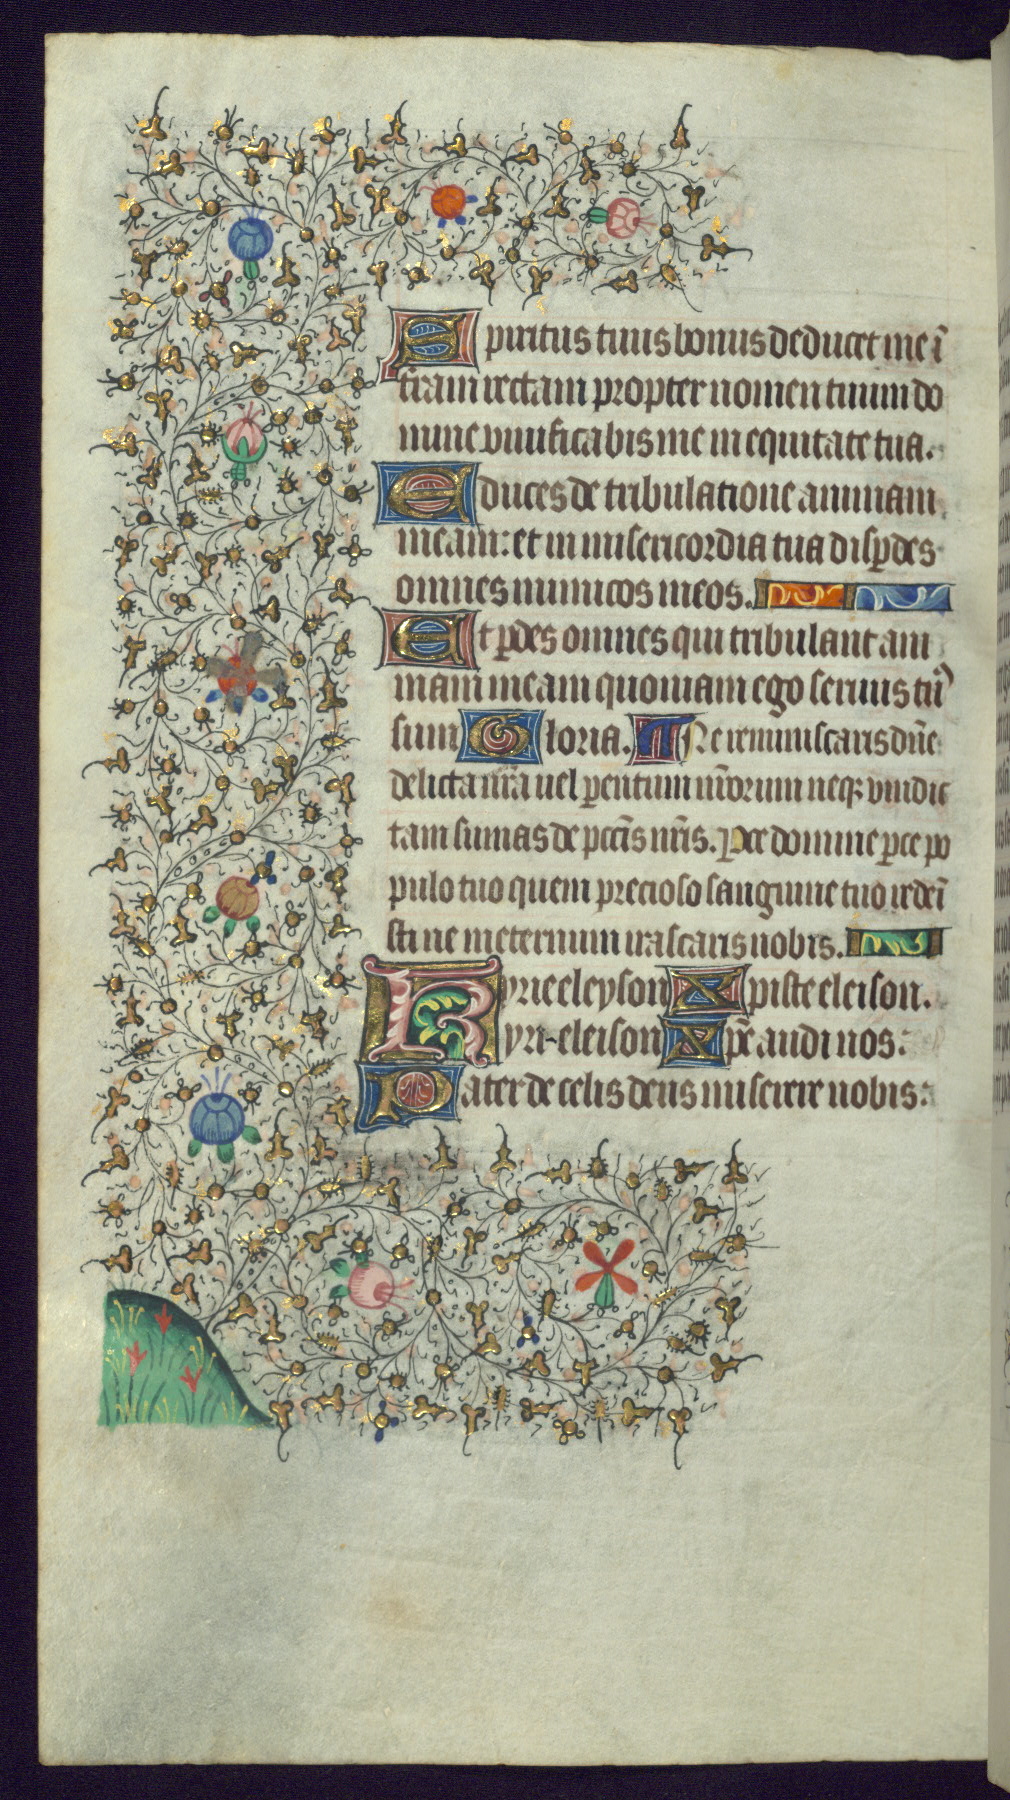 Spiritus tuus bonus deducet me ī
t̄ram rectam propter nomen tuum do
mine viuificabis me in equitate tua.
Educes de tribulatione animam
meam: et in misericordia tua disꝑdes
omnes inimicos meos.
Et ꝑdes omnes qui tribulant ani
mam meam quoniam ego seruus tu᷒
sum Gloria. Ne reminiscaris dn̄e
delicta nr̄a uel ꝑentum nr̄orum neqꝫ vindic
tam sumas de pccīs nr̄is. Ꝑce domine ꝑce po
pulo tuo quem precioso sanguine tuo redeī
sti ne ineternum irascaris nobis.
Kyrieeleyson Xpiste eleison.
Kyri-eleison Xp̄e audi nos:
Pater de celis deus miserere nobis: